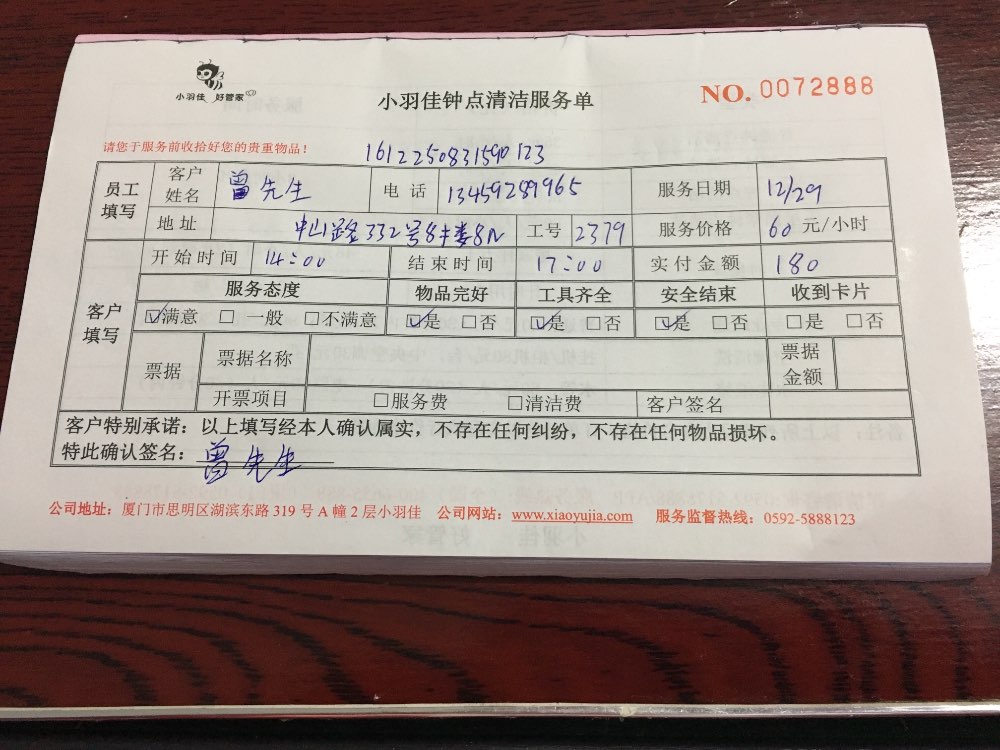 小羽佳 好管家
小羽佳钟点清洁服务单
NO. 0072888
请您于服务前收拾好您的贵重物品！
1612250831590123
员工填写 客户姓名 曾先生 电话 13459289965 服务日期 12/29
地址 中山路332号8楼8N 工号 2379 服务价格 60 元/小时
客户填写 开始时间 14:00 结束时间 17:00 实付金额 180
服务态度 物品完好 工具齐全 安全结束 收到卡片
☑满意 □一般 □不满意 ☑是 □否 ☑是 □否 ☑是 □否 □是 □否
票据 票据名称 票据金额
开票项目 □服务费 □清洁费 客户签名
客户特别承诺：以上填写经本人确认属实，不存在任何纠纷，不存在任何物品损坏。
特此确认签名：曾先生
公司地址：厦门市思明区湖滨东路 319 号 A 幢 2 层小羽佳 公司网站：www.xiaoyujia.com 服务监督热线：0592-5888123